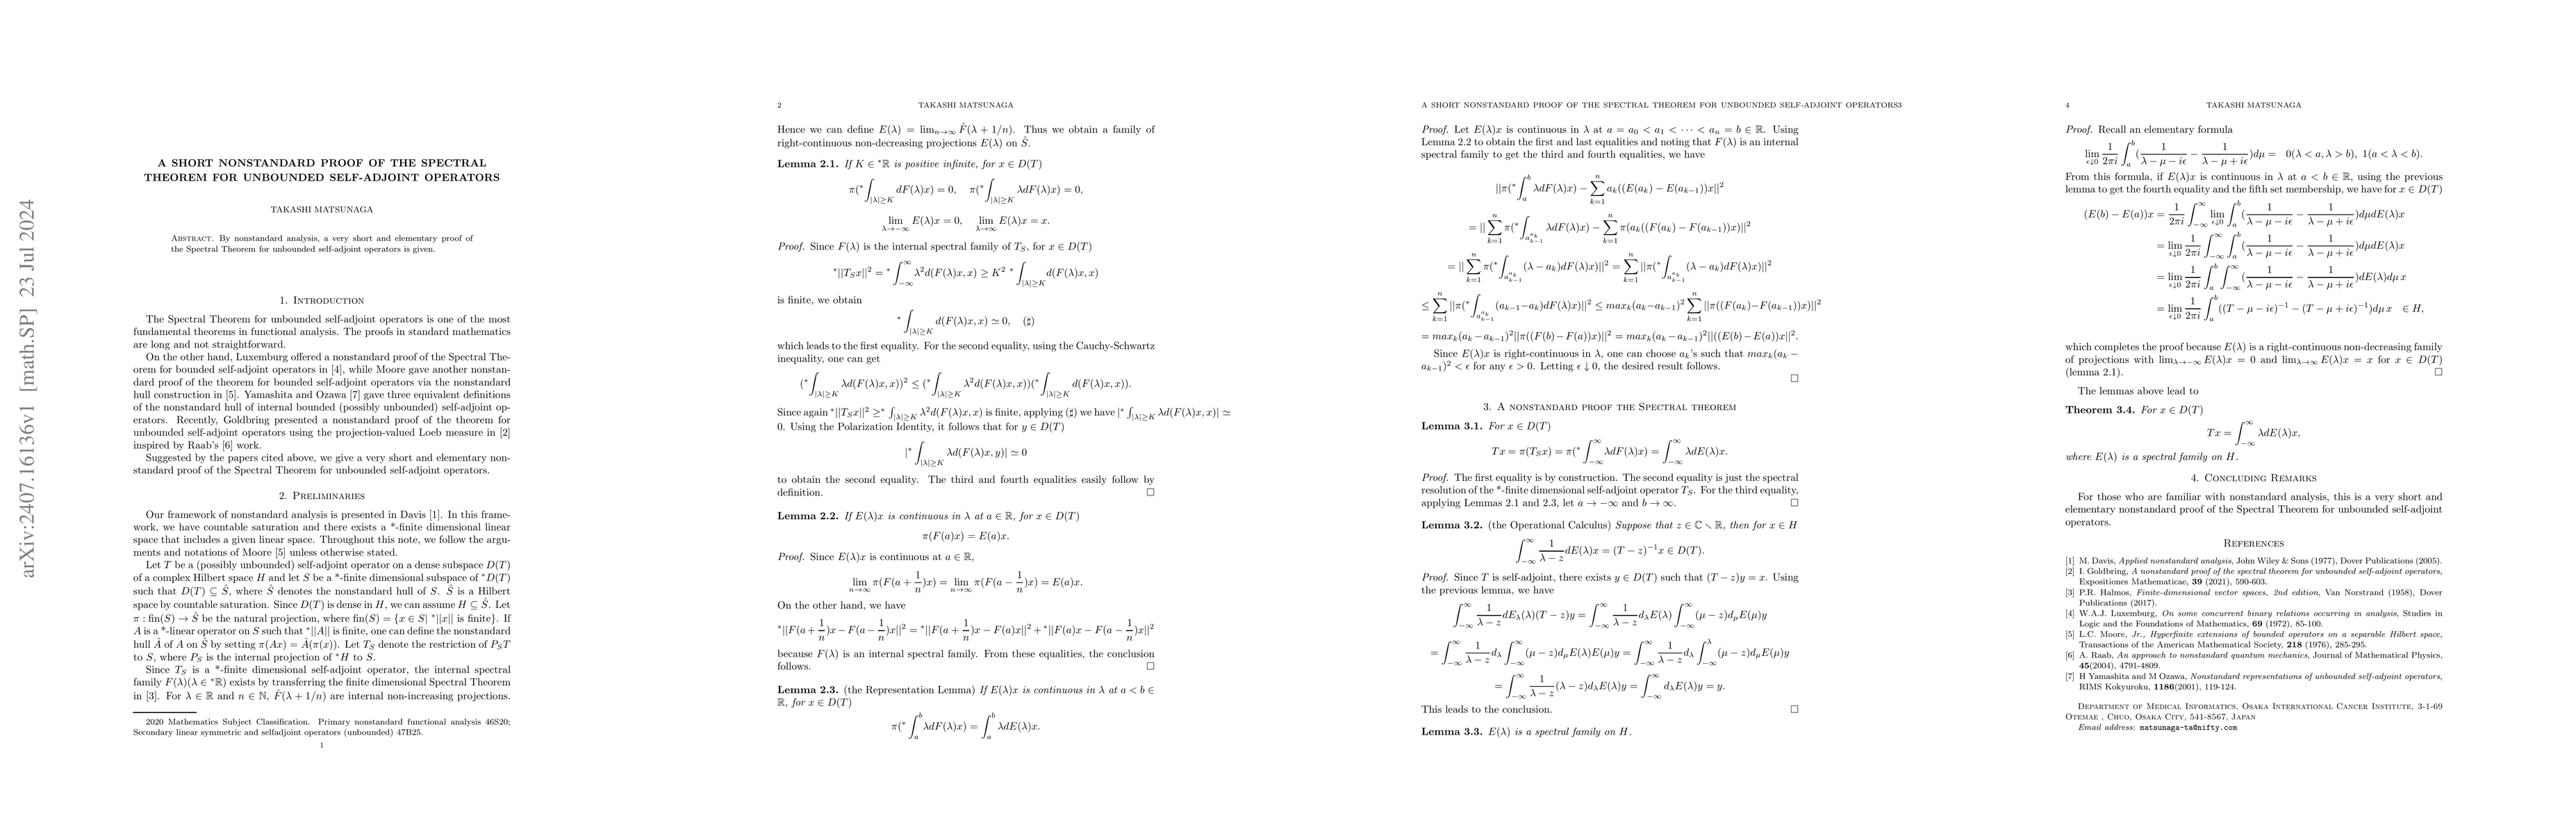 arXiv:2407.16136v1 [math.SP] 23 Jul 2024
A SHORT NONSTANDARD PROOF OF THE SPECTRAL
THEOREM FOR UNBOUNDED SELF-ADJOINT OPERATORS
TAKASHI MATSUNAGA
ABSTRACT. By nonstandard analysis, a very short and elementary proof of
the Spectral Theorem for unbounded self-adjoint operators is given.
1. INTRODUCTION
The Spectral Theorem for unbounded self-adjoint operators is one of the most
fundamental theorems in functional analysis. The proofs in standard mathematics
are long and not straightforward.
On the other hand, Luxemburg offered a nonstandard proof of the Spectral The-
orem for bounded self-adjoint operators in [4], while Moore gave another nonstan-
dard proof of the theorem for bounded self-adjoint operators via the nonstandard
hull construction in [5]. Yamashita and Ozawa [7] gave three equivalent definitions
of the nonstandard hull of internal bounded (possibly unbounded) self-adjoint op-
erators. Recently, Goldbring presented a nonstandard proof of the theorem for
unbounded self-adjoint operators using the projection-valued Loeb measure in [2]
inspired by Raab's [6] work.
Suggested by the papers cited above, we give a very short and elementary non-
standard proof of the Spectral Theorem for unbounded self-adjoint operators.
2. PRELIMINARIES
Our framework of nonstandard analysis is presented in Davis [1]. In this frame-
work, we have countable saturation and there exists a *-finite dimensional linear
space that includes a given linear space. Throughout this note, we follow the argu-
ments and notations of Moore [5] unless otherwise stated.
Let T be a (possibly unbounded) self-adjoint operator on a dense subspace D(T)
of a complex Hilbert space H and let S be a *-finite dimensional subspace of *D(T)
such that D(T) ⊆ Ŝ, where Ŝ denotes the nonstandard hull of S. Ŝ is a Hilbert
space by countable saturation. Since D(T) is dense in H, we can assume H ⊆ Ŝ. Let
π : fin(S) → Ŝ be the natural projection, where fin(S) = {x ∈ S| *||x|| is finite}. If
A is a *-linear operator on S such that *||A|| is finite, one can define the nonstandard
hull Â of A on Ŝ by setting π(Ax) = Â(π(x)). Let T_S denote the restriction of P_S T
to S, where P_S is the internal projection of *H to S.
Since T_S is a *-finite dimensional self-adjoint operator, the internal spectral
family F(λ)(λ ∈ *ℝ) exists by transferring the finite dimensional Spectral Theorem
in [3]. For λ ∈ ℝ and n ∈ ℕ, F̂(λ + 1/n) are internal non-increasing projections.
2020 Mathematics Subject Classification. Primary nonstandard functional analysis 46S20;
Secondary linear symmetric and selfadjoint operators (unbounded) 47B25.
1
2 TAKASHI MATSUNAGA
Hence we can define E(λ) = lim_{n→∞} F̂(λ + 1/n). Thus we obtain a family of
right-continuous non-decreasing projections E(λ) on Ŝ.
Lemma 2.1. If K ∈ *ℝ is positive infinite, for x ∈ D(T)
π(*∫_{|λ|≥K} dF(λ)x) = 0, π(*∫_{|λ|≥K} λdF(λ)x) = 0,
lim_{λ→−∞} E(λ)x = 0, lim_{λ→∞} E(λ)x = x.
Proof. Since F(λ) is the internal spectral family of T_S, for x ∈ D(T)
*||T_S x||² = *∫_{−∞}^{∞} λ²d(F(λ)x, x) ≥ K² *∫_{|λ|≥K} d(F(λ)x, x)
is finite, we obtain
*∫_{|λ|≥K} d(F(λ)x, x) ≃ 0, (♯)
which leads to the first equality. For the second equality, using the Cauchy-Schwartz
inequality, one can get
(*∫_{|λ|≥K} λd(F(λ)x, x))² ≤ (*∫_{|λ|≥K} λ²d(F(λ)x, x))(*∫_{|λ|≥K} d(F(λ)x, x)).
Since again *||T_S x||² ≥* ∫_{|λ|≥K} λ²d(F(λ)x, x) is finite, applying (♯) we have |*∫_{|λ|≥K} λd(F(λ)x, x)| ≃
0. Using the Polarization Identity, it follows that for y ∈ D(T)
|*∫_{|λ|≥K} λd(F(λ)x, y)| ≃ 0
to obtain the second equality. The third and fourth equalities easily follow by
definition. □
Lemma 2.2. If E(λ)x is continuous in λ at a ∈ ℝ, for x ∈ D(T)
π(F(a)x) = E(a)x.
Proof. Since E(λ)x is continuous at a ∈ ℝ,
lim_{n→∞} π(F(a + 1/n)x) = lim_{n→∞} π(F(a − 1/n)x) = E(a)x.
On the other hand, we have
*||F(a + 1/n)x−F(a − 1/n)x||² = *||F(a + 1/n)x−F(a)x||² + *||F(a)x−F(a − 1/n)x||²
because F(λ) is an internal spectral family. From these equalities, the conclusion
follows. □
Lemma 2.3. (the Representation Lemma) If E(λ)x is continuous in λ at a < b ∈
ℝ, for x ∈ D(T)
π(*∫_a^b λdF(λ)x) = ∫_a^b λdE(λ)x.
A SHORT NONSTANDARD PROOF OF THE SPECTRAL THEOREM FOR UNBOUNDED SELF-ADJOINT OPERATORS3
Proof. Let E(λ)x is continuous in λ at a = a_0 < a_1 < ··· < a_n = b ∈ ℝ. Using
Lemma 2.2 to obtain the first and last equalities and noting that F(λ) is an internal
spectral family to get the third and fourth equalities, we have
||π(*∫_a^b λdF(λ)x) − ∑_{k=1}^n a_k((E(a_k) − E(a_{k−1}))x||²
= ||∑_{k=1}^n π(*∫_{a_{k−1}}^{a_k} λdF(λ)x) − ∑_{k=1}^n π(a_k((F(a_k) − F(a_{k−1}))x)||²
= ||∑_{k=1}^n π(*∫_{a_{k−1}}^{a_k} (λ − a_k)dF(λ)x)||² = ∑_{k=1}^n ||π(*∫_{a_{k−1}}^{a_k} (λ − a_k)dF(λ)x)||²
≤ ∑_{k=1}^n ||π(*∫_{a_{k−1}}^{a_k} (a_{k−1}−a_k)dF(λ)x)||² ≤ max_k(a_k−a_{k−1})² ∑_{k=1}^n ||π((F(a_k)−F(a_{k−1}))x)||²
= max_k(a_k−a_{k−1})²||π((F(b)−F(a))x)||² = max_k(a_k−a_{k−1})²||((E(b)−E(a))x||².
Since E(λ)x is right-continuous in λ, one can choose a_k's such that max_k(a_k −
a_{k−1})² < ϵ for any ϵ > 0. Letting ϵ ↓ 0, the desired result follows.
□
3. A NONSTANDARD PROOF THE SPECTRAL THEOREM
Lemma 3.1. For x ∈ D(T)
Tx = π(T_S x) = π(*∫_{−∞}^{∞} λdF(λ)x) = ∫_{−∞}^{∞} λdE(λ)x.
Proof. The first equality is by construction. The second equality is just the spectral
resolution of the *-finite dimensional self-adjoint operator T_S. For the third equality,
applying Lemmas 2.1 and 2.3, let a → −∞ and b → ∞. □
Lemma 3.2. (the Operational Calculus) Suppose that z ∈ ℂ ∖ ℝ, then for x ∈ H
∫_{−∞}^{∞} 1/(λ − z) dE(λ)x = (T − z)^{−1}x ∈ D(T).
Proof. Since T is self-adjoint, there exists y ∈ D(T) such that (T − z)y = x. Using
the previous lemma, we have
∫_{−∞}^{∞} 1/(λ − z) dE_λ(λ)(T − z)y = ∫_{−∞}^{∞} 1/(λ − z) d_λE(λ) ∫_{−∞}^{∞} (μ − z)d_μE(μ)y
= ∫_{−∞}^{∞} 1/(λ − z) d_λ ∫_{−∞}^{∞} (μ − z)d_μE(λ)E(μ)y = ∫_{−∞}^{∞} 1/(λ − z) d_λ ∫_{−∞}^{λ} (μ − z)d_μE(μ)y
= ∫_{−∞}^{∞} 1/(λ − z) (λ − z)d_λE(λ)y = ∫_{−∞}^{∞} d_λE(λ)y = y.
This leads to the conclusion. □
Lemma 3.3. E(λ) is a spectral family on H.
4 TAKASHI MATSUNAGA
Proof. Recall an elementary formula
lim_{ϵ↓0} 1/(2πi) ∫_a^b (1/(λ − μ − iϵ) − 1/(λ − μ + iϵ))dμ = 0(λ < a, λ > b), 1(a < λ < b).
From this formula, if E(λ)x is continuous in λ at a < b ∈ ℝ, using the previous
lemma to get the fourth equality and the fifth set membership, we have for x ∈ D(T)
(E(b) − E(a))x = 1/(2πi) ∫_{−∞}^{∞} lim_{ϵ↓0} ∫_a^b (1/(λ − μ − iϵ) − 1/(λ − μ + iϵ))dμdE(λ)x
= lim_{ϵ↓0} 1/(2πi) ∫_{−∞}^{∞} ∫_a^b (1/(λ − μ − iϵ) − 1/(λ − μ + iϵ))dμdE(λ)x
= lim_{ϵ↓0} 1/(2πi) ∫_a^b ∫_{−∞}^{∞} (1/(λ − μ − iϵ) − 1/(λ − μ + iϵ))dE(λ)dμ x
= lim_{ϵ↓0} 1/(2πi) ∫_a^b ((T − μ − iϵ)^{−1} − (T − μ + iϵ)^{−1})dμ x ∈ H,
which completes the proof because E(λ) is a right-continuous non-decreasing family
of projections with lim_{λ→−∞} E(λ)x = 0 and lim_{λ→∞} E(λ)x = x for x ∈ D(T)
(lemma 2.1). □
The lemmas above lead to
Theorem 3.4. For x ∈ D(T)
Tx = ∫_{−∞}^{∞} λdE(λ)x,
where E(λ) is a spectral family on H.
4. CONCLUDING REMARKS
For those who are familiar with nonstandard analysis, this is a very short and
elementary nonstandard proof of the Spectral Theorem for unbounded self-adjoint
operators.
REFERENCES
[1] M. Davis, Applied nonstandard analysis, John Wiley & Sons (1977), Dover Publications (2005).
[2] I. Goldbring, A nonstandard proof of the spectral theorem for unbounded self-adjoint operators,
Expositiones Mathematicae, 39 (2021), 590-603.
[3] P.R. Halmos, Finite-dimensional vector spaces, 2nd edition, Van Norstrand (1958), Dover
Publications (2017).
[4] W.A.J. Luxemburg, On some concurrent binary relations occurring in analysis, Studies in
Logic and the Foundations of Mathematics, 69 (1972), 85-100.
[5] L.C. Moore, Jr., Hyperfinite extensions of bounded operators on a separable Hilbert space,
Transactions of the American Mathematical Society, 218 (1976), 285-295.
[6] A. Raab, An approach to nonstandard quantum mechanics, Journal of Mathematical Physics,
45(2004), 4791-4809.
[7] H Yamashita and M Ozawa, Nonstandard representations of unbounded self-adjoint operators,
RIMS Kokyuroku, 1186(2001), 119-124.
DEPARTMENT OF MEDICAL INFORMATICS, OSAKA INTERNATIONAL CANCER INSTITUTE, 3-1-69
OTEMAE , CHUO, OSAKA CITY, 541-8567, JAPAN
Email address: matsunaga-ta@nifty.com